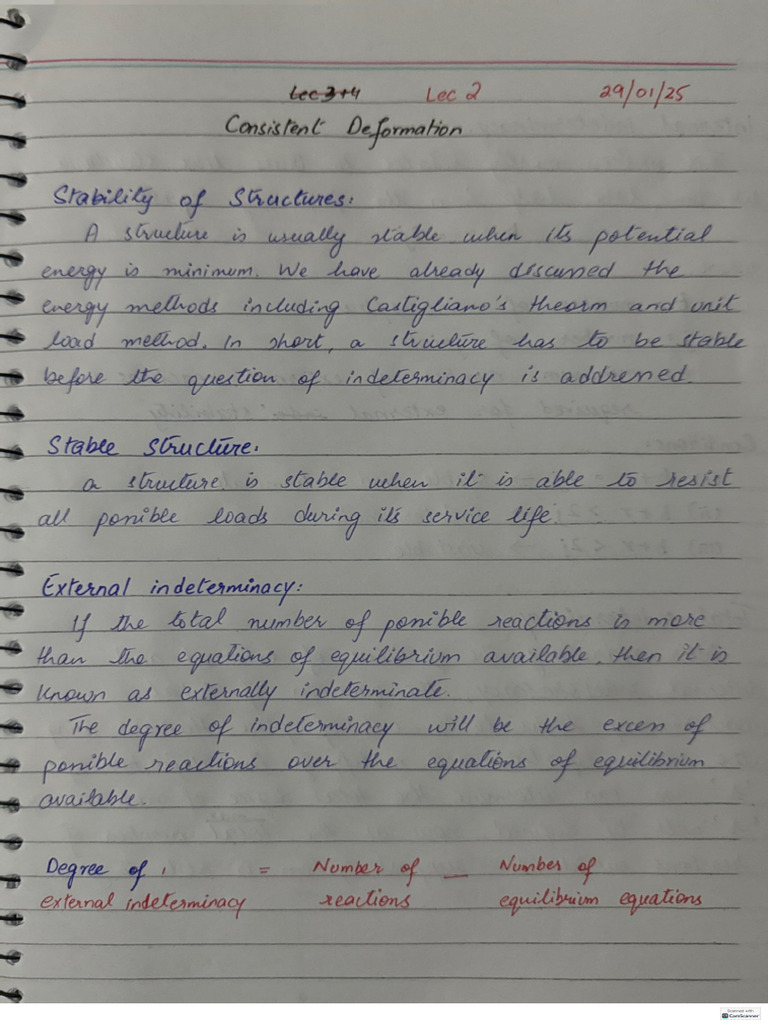 Lec 3+4 Lec 2 29/01/25
Consistent Deformation
Stability of Structures:
A structure is usually stable when its potential
energy is minimum. We have already discussed the
energy methods including Castigliano's theorm and unit
load method. In short, a structure has to be stable
before the question of indeterminacy is addressed.
Stable Structure:
a structure is stable when it is able to resist
all possible loads during its service life.
External indeterminacy:
If the total number of possible reactions is more
than the equations of equilibrium available, then it is
known as externally indeterminate.
The degree of indeterminacy will be the excess of
possible reactions over the equations of equilibrium
available.
Degree of = Number of — Number of
external indeterminacy reactions equilibrium equations
Scanned with
CamScanner